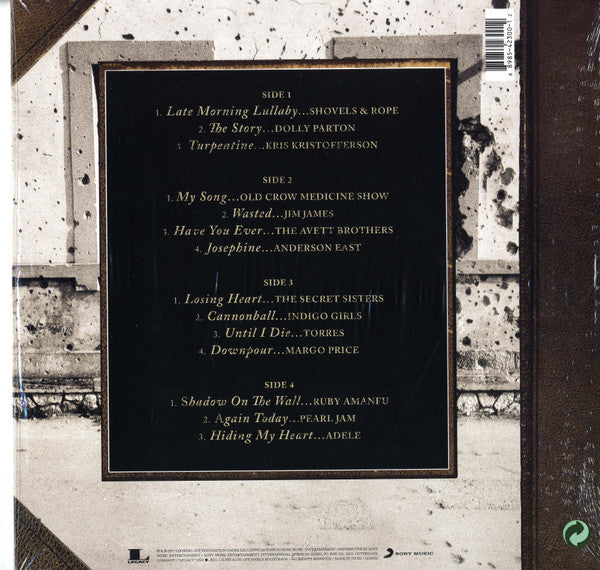 8 8985-42300-1 2
SIDE 1
1. Late Morning Lullaby...SHOVELS & ROPE
2. The Story...DOLLY PARTON
3. Turpentine...KRIS KRISTOFFERSON
SIDE 2
1. My Song...OLD CROW MEDICINE SHOW
2. Wasted...JIM JAMES
3. Have You Ever...THE AVETT BROTHERS
4. Josephine...ANDERSON EAST
SIDE 3
1. Losing Heart...THE SECRET SISTERS
2. Cannonball...INDIGO GIRLS
3. Until I Die...TORRES
4. Downpour...MARGO PRICE
SIDE 4
1. Shadow On The Wall...RUBY AMANFU
2. Again Today...PEARL JAM
3. Hiding My Heart...ADELE
L
LEGACY
SONY MUSIC